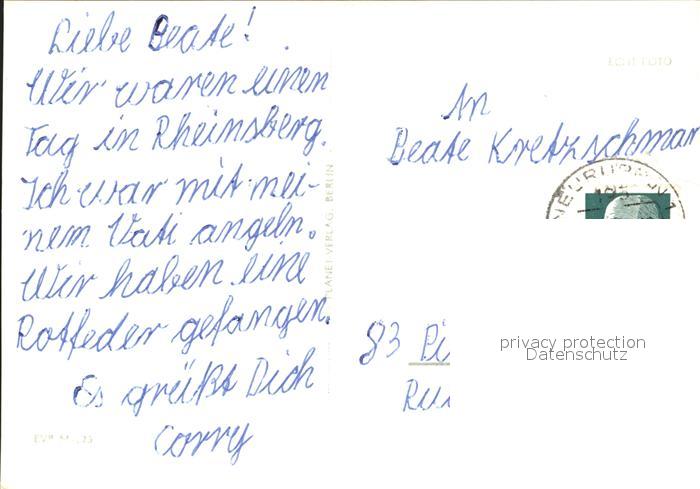 Liebe Beate!
Wir waren einen
Tag in Rheinsberg.
Ich war mit mei-
nem Vati angeln.
Wir haben eine
Rotfeder gefangen.
Es grüßt Dich
Corry
PLANET-VERLAG, BERLIN
ECHT FOTO
An
Beate Kretzschmar
NEURUPPIN 1
83 Pi
privacy protection
Datenschutz